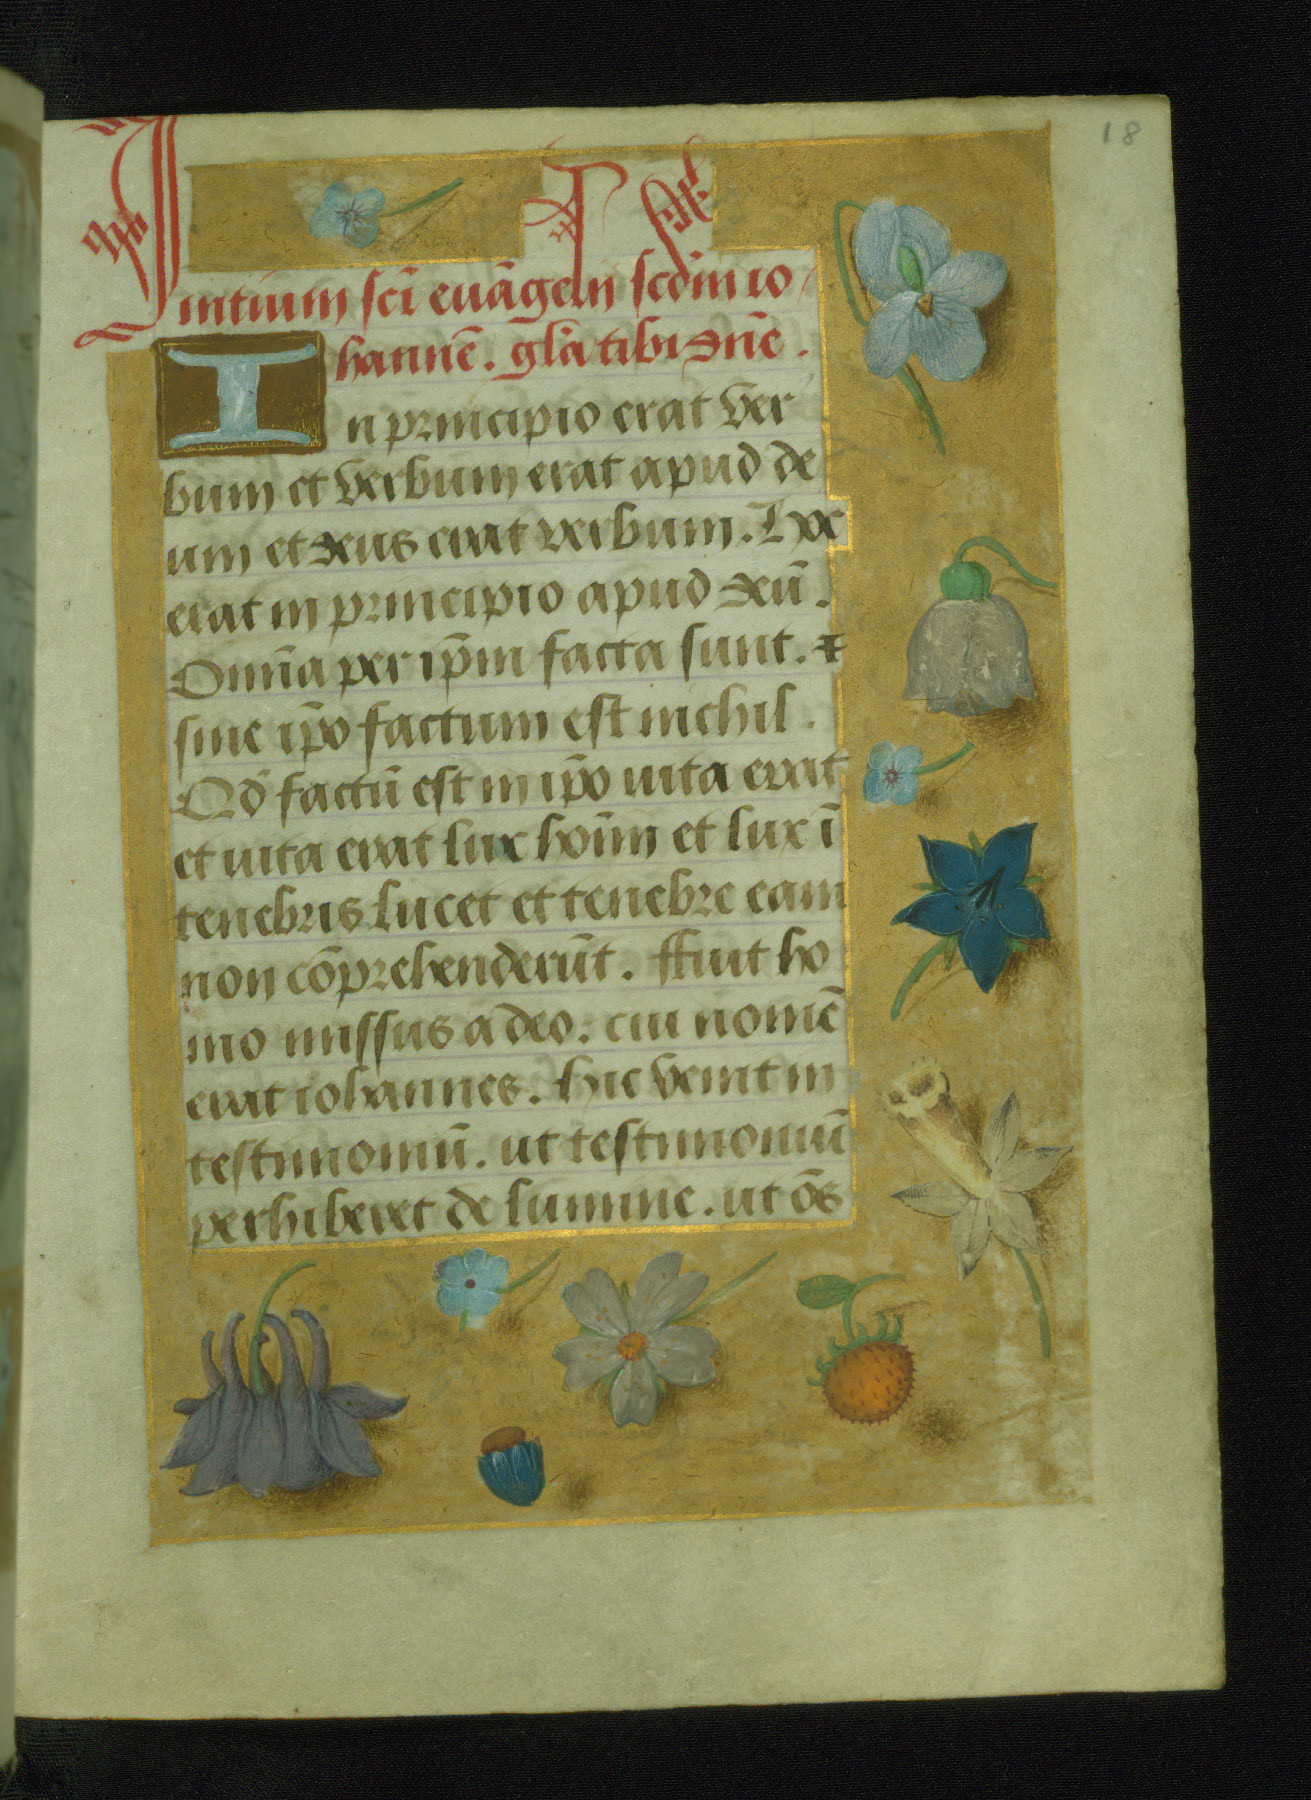 18
Initium sc̄i euāgelij scd̄m io
hannē. gl̄a tibi dn̄e.
In principio erat ver
bum et verbum erat apud de
um et deus erat verbum. Hoc
erat in principio apud deū.
Omīa per ip̄m facta sunt. et
sine ip̄o factum est nichil.
Qd̄ factū est in ip̄o uita erat
et uita erat lux hoīm et lux ī
tenebris lucet et tenebre eam
non cōprehenderūt. ffuit ho
mo missus a deo. cui nomē
erat iohannes. hic venit in
testimoniū. ut testimoniū
perhiberet de lumine. ut ōs